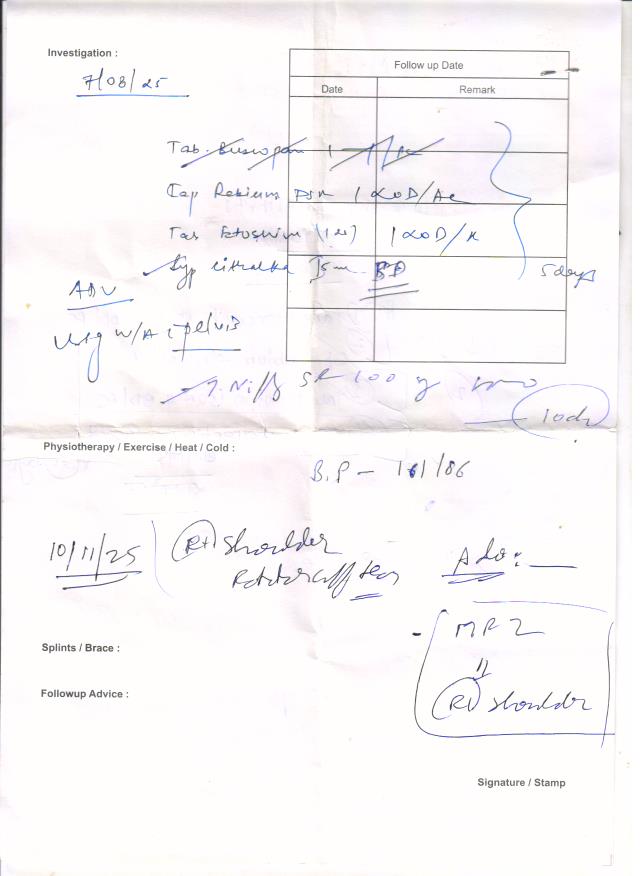 Investigation :
Follow up Date
7/08/25
Date Remark
Tab. Buscopan 1
Cap Rekium DSR 1 OD/Ac
Tab (120) 1 OD/
Syp Citralka BD
5 days
ADV
Usg W/A c pelvis
SR 100
Physiotherapy / Exercise / Heat / Cold :
B.P - 161/86
10/11/25 (Rt) Shoulder
Rotator cuff tear
Adv: —
MRI
(Rt) shoulder
Splints / Brace :
Followup Advice :
Signature / Stamp